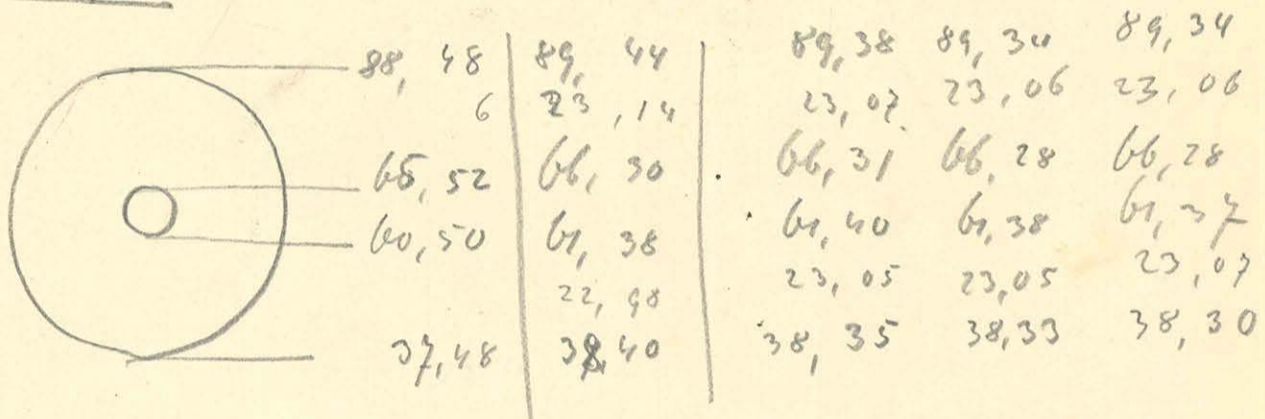 88, 48 89, 44 89, 38 89, 34 89, 34
6 23, 14 23, 07 23, 06 23, 06
65, 52 66, 30 66, 31 66, 28 66, 28
60, 50 61, 38 61, 40 61, 38 61, 37
22, 98 23, 05 23,05 23, 07
37,48 38,40 38, 35 38,33 38, 30